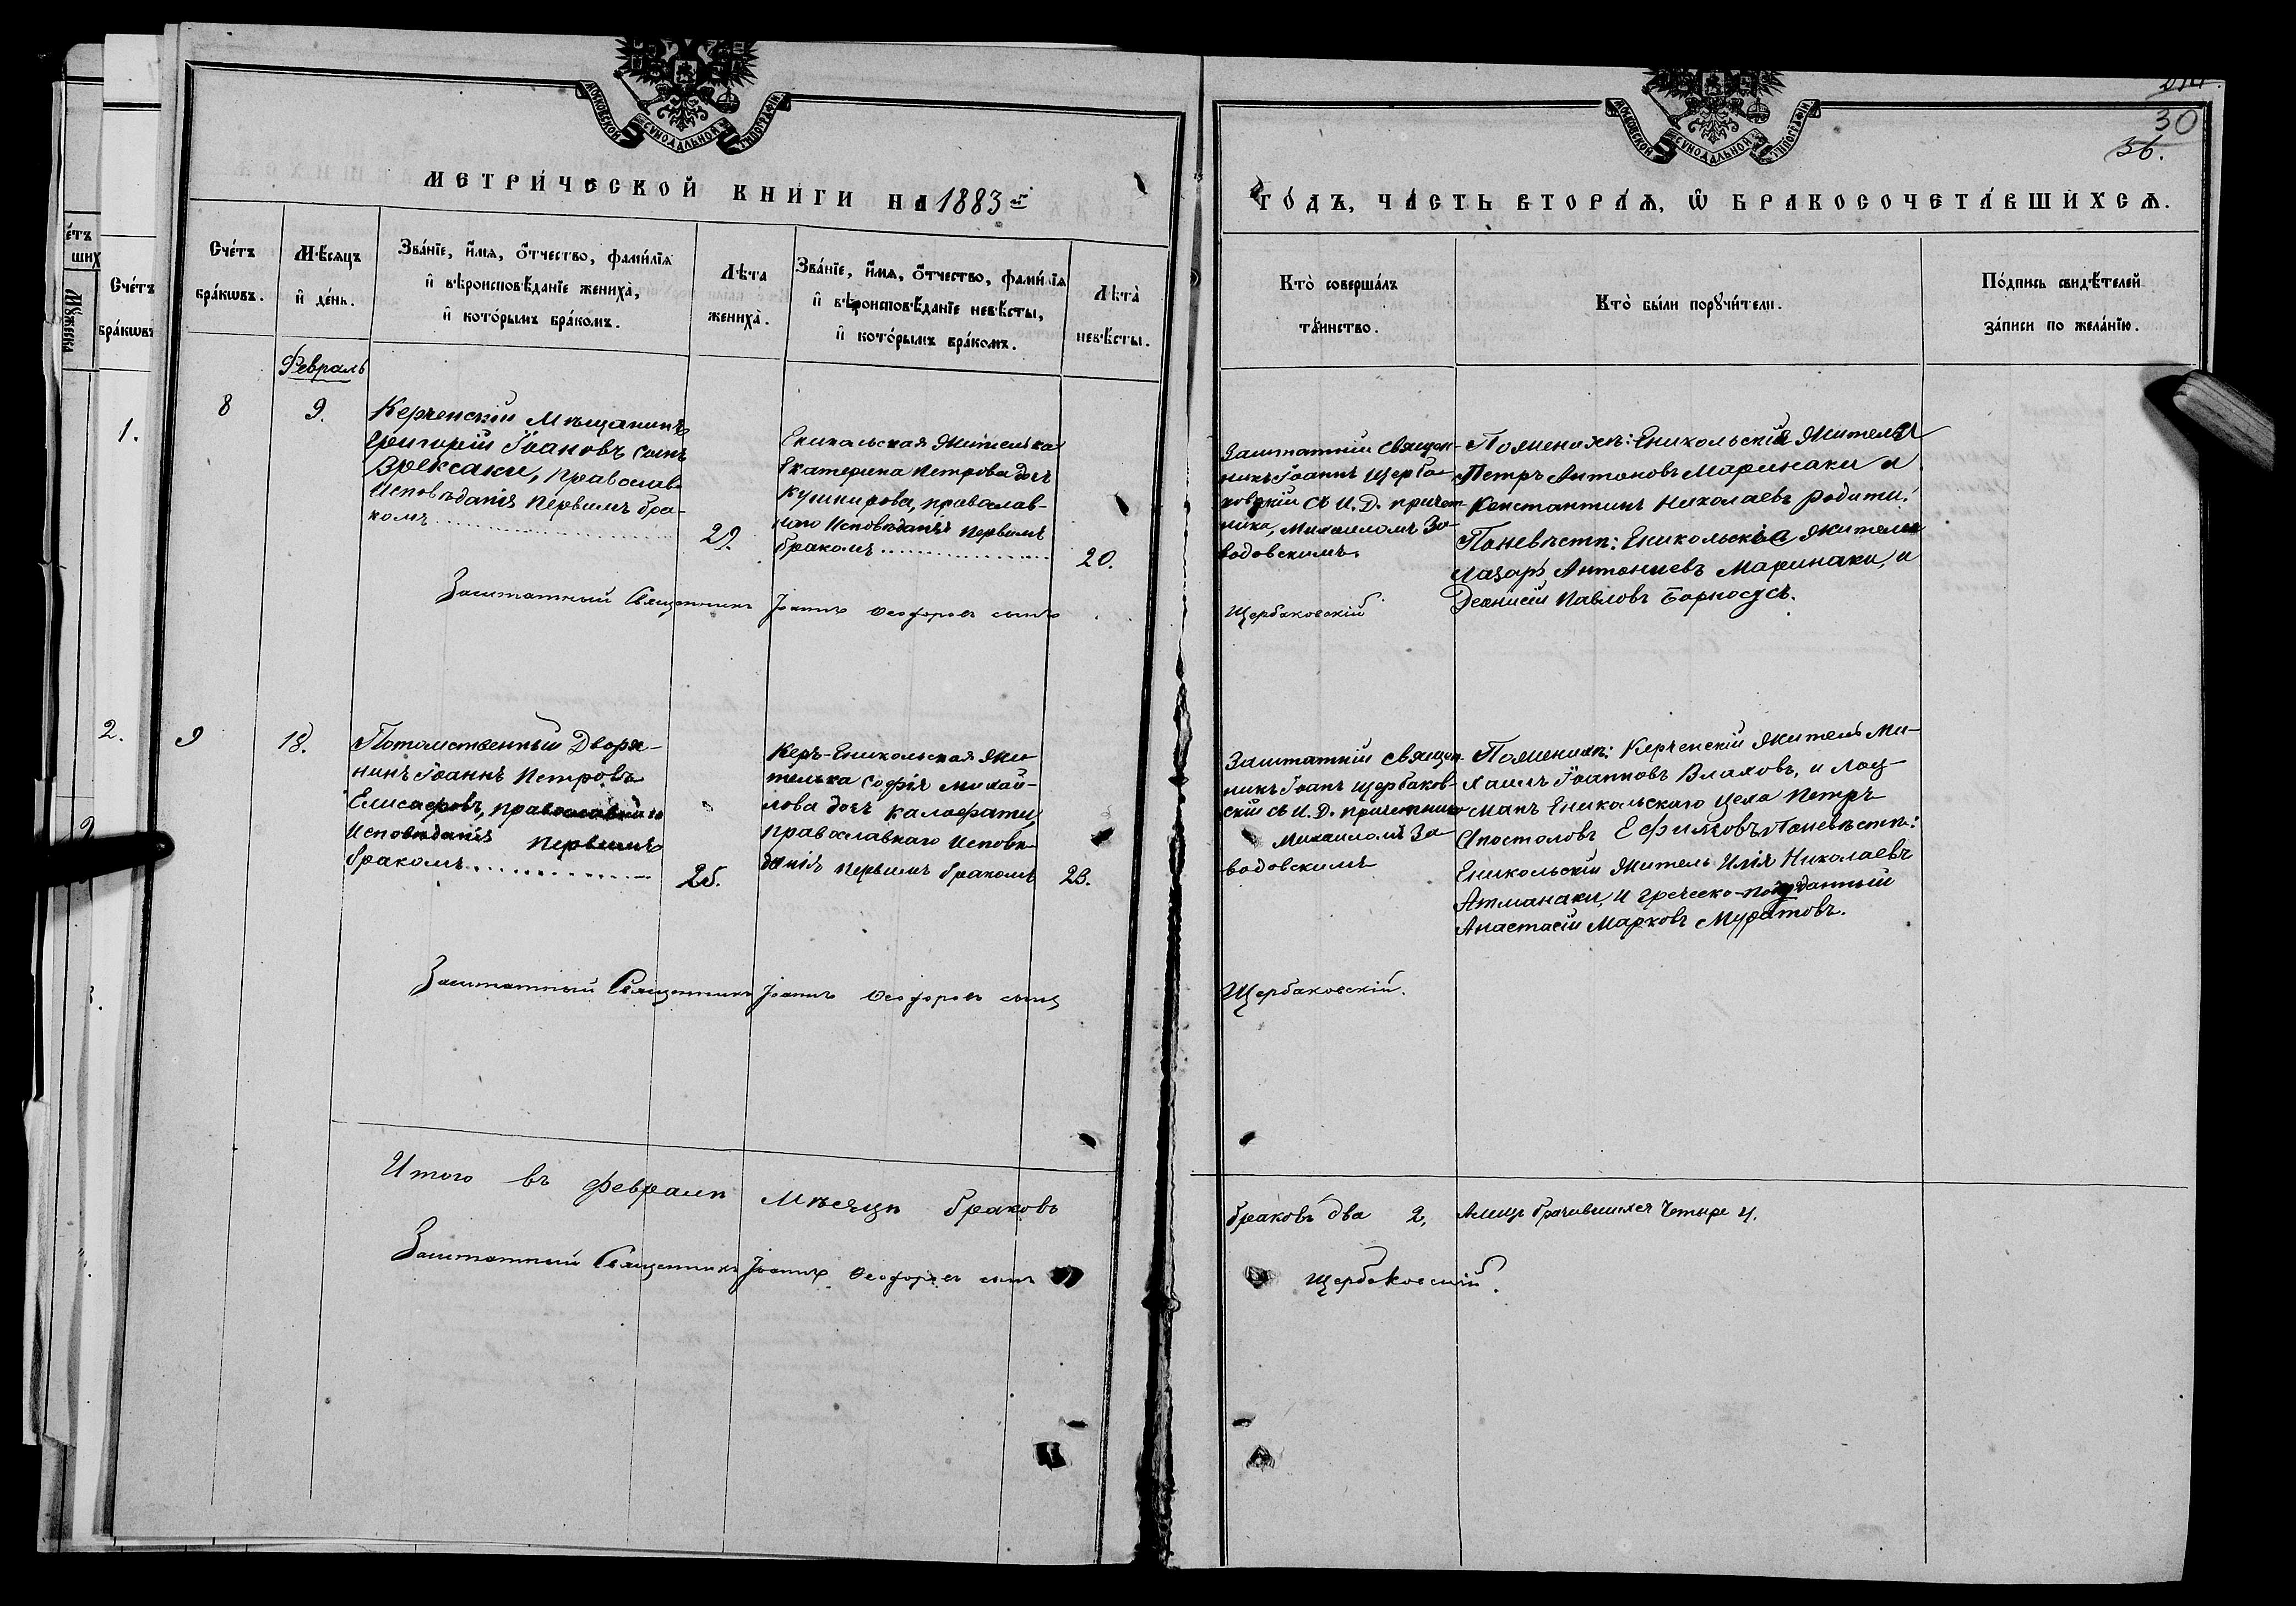 МЕТРИ́ЧЕСКОЙ КНИГИ НА 1883 й
ГО́ДЪ, ЧА́СТЬ ВТОРА́Ѧ, Ѡ БРАКОСОЧЕТА́ВШИХСѦ.
30
36.
Сче́тъ бра́кѡвъ.
Мѣ́сяцъ и де́нь.
Зва́нїе, и́мя, о́тчество, фами́лїя
и вѣроисповѣ́данїе жениха̀,
и кото́рымъ бра́комъ.
Лѣта жениха̀.
Зва́нїе, и́мя, о́тчество, фами́лїя
и вѣроисповѣ́данїе невѣ́сты,
и кото́рымъ бра́комъ.
Лѣта̀ невѣ́сты.
Кто̀ соверша́лъ
та́инство.
Кто̀ бы́ли порꙋчи́тели.
По́дпись свидѣ́телей
за́писи по жела́нїю.
Февраль
8
9.
Керченскій Мѣщанинъ
Григорій Іоановъ сынъ
православ.
Исповѣданія первымъ бра-
комъ
29.
Еникальская Жителька
Екатерина Петрова дочь
Кушнирова, православ-
наго Исповѣданія первымъ
бракомъ
20.
Заштатній священ-
никъ Іоаннъ Щерба-
ковскій съ И. Д. причет-
ника, Михаиломъ За-
водовскимъ.
По женихѣ: Еникольскія Жители
Петръ Антоновъ Маринаки и
Константинъ Николаевъ Родити.
По невѣстѣ: Еникольскіе Жители
Лазарь Антониевъ Маринаки, и
Деонисій Павловъ
Заштатный Священникъ Іоаннъ Ѳеодоровъ сынъ
Щербаковскій
9
18.
Потомственный Дворя-
нинъ Іоаннъ Петровъ
православнаго
Исповѣданія первымъ
бракомъ
25.
Керъ-Еникольская Жи-
телька Софія Михай-
лова дочь Калафати,
православнаго Исповѣ-
данія первымъ бракомъ
23.
Заштатній священ-
никъ Іоанъ Щербаков-
скій съ И. Д. причетника
Михаиломъ За-
водовскимъ
По женихѣ: Керченскій житель Ми-
хаилъ Іоанновъ Влаховъ, и лоц-
манъ Еникольскаго цеха Петръ
Апостоловъ Ефимовъ. По невѣстѣ:
Еникольскій Житель Илія Николаевъ
Атманаки, и греческо-подданный
Анастасій Марковъ Муратовъ.
Заштатный Священникъ Іоаннъ Ѳеодоровъ сынъ
Щербаковскій.
Итого въ Февралѣ Мѣсяцѣ браковъ
браковъ два 2, Алицъ брачившихся четыре 4.
Заштатный Священникъ Іоаннъ Ѳеодоровъ сынъ
Щербаковскій.